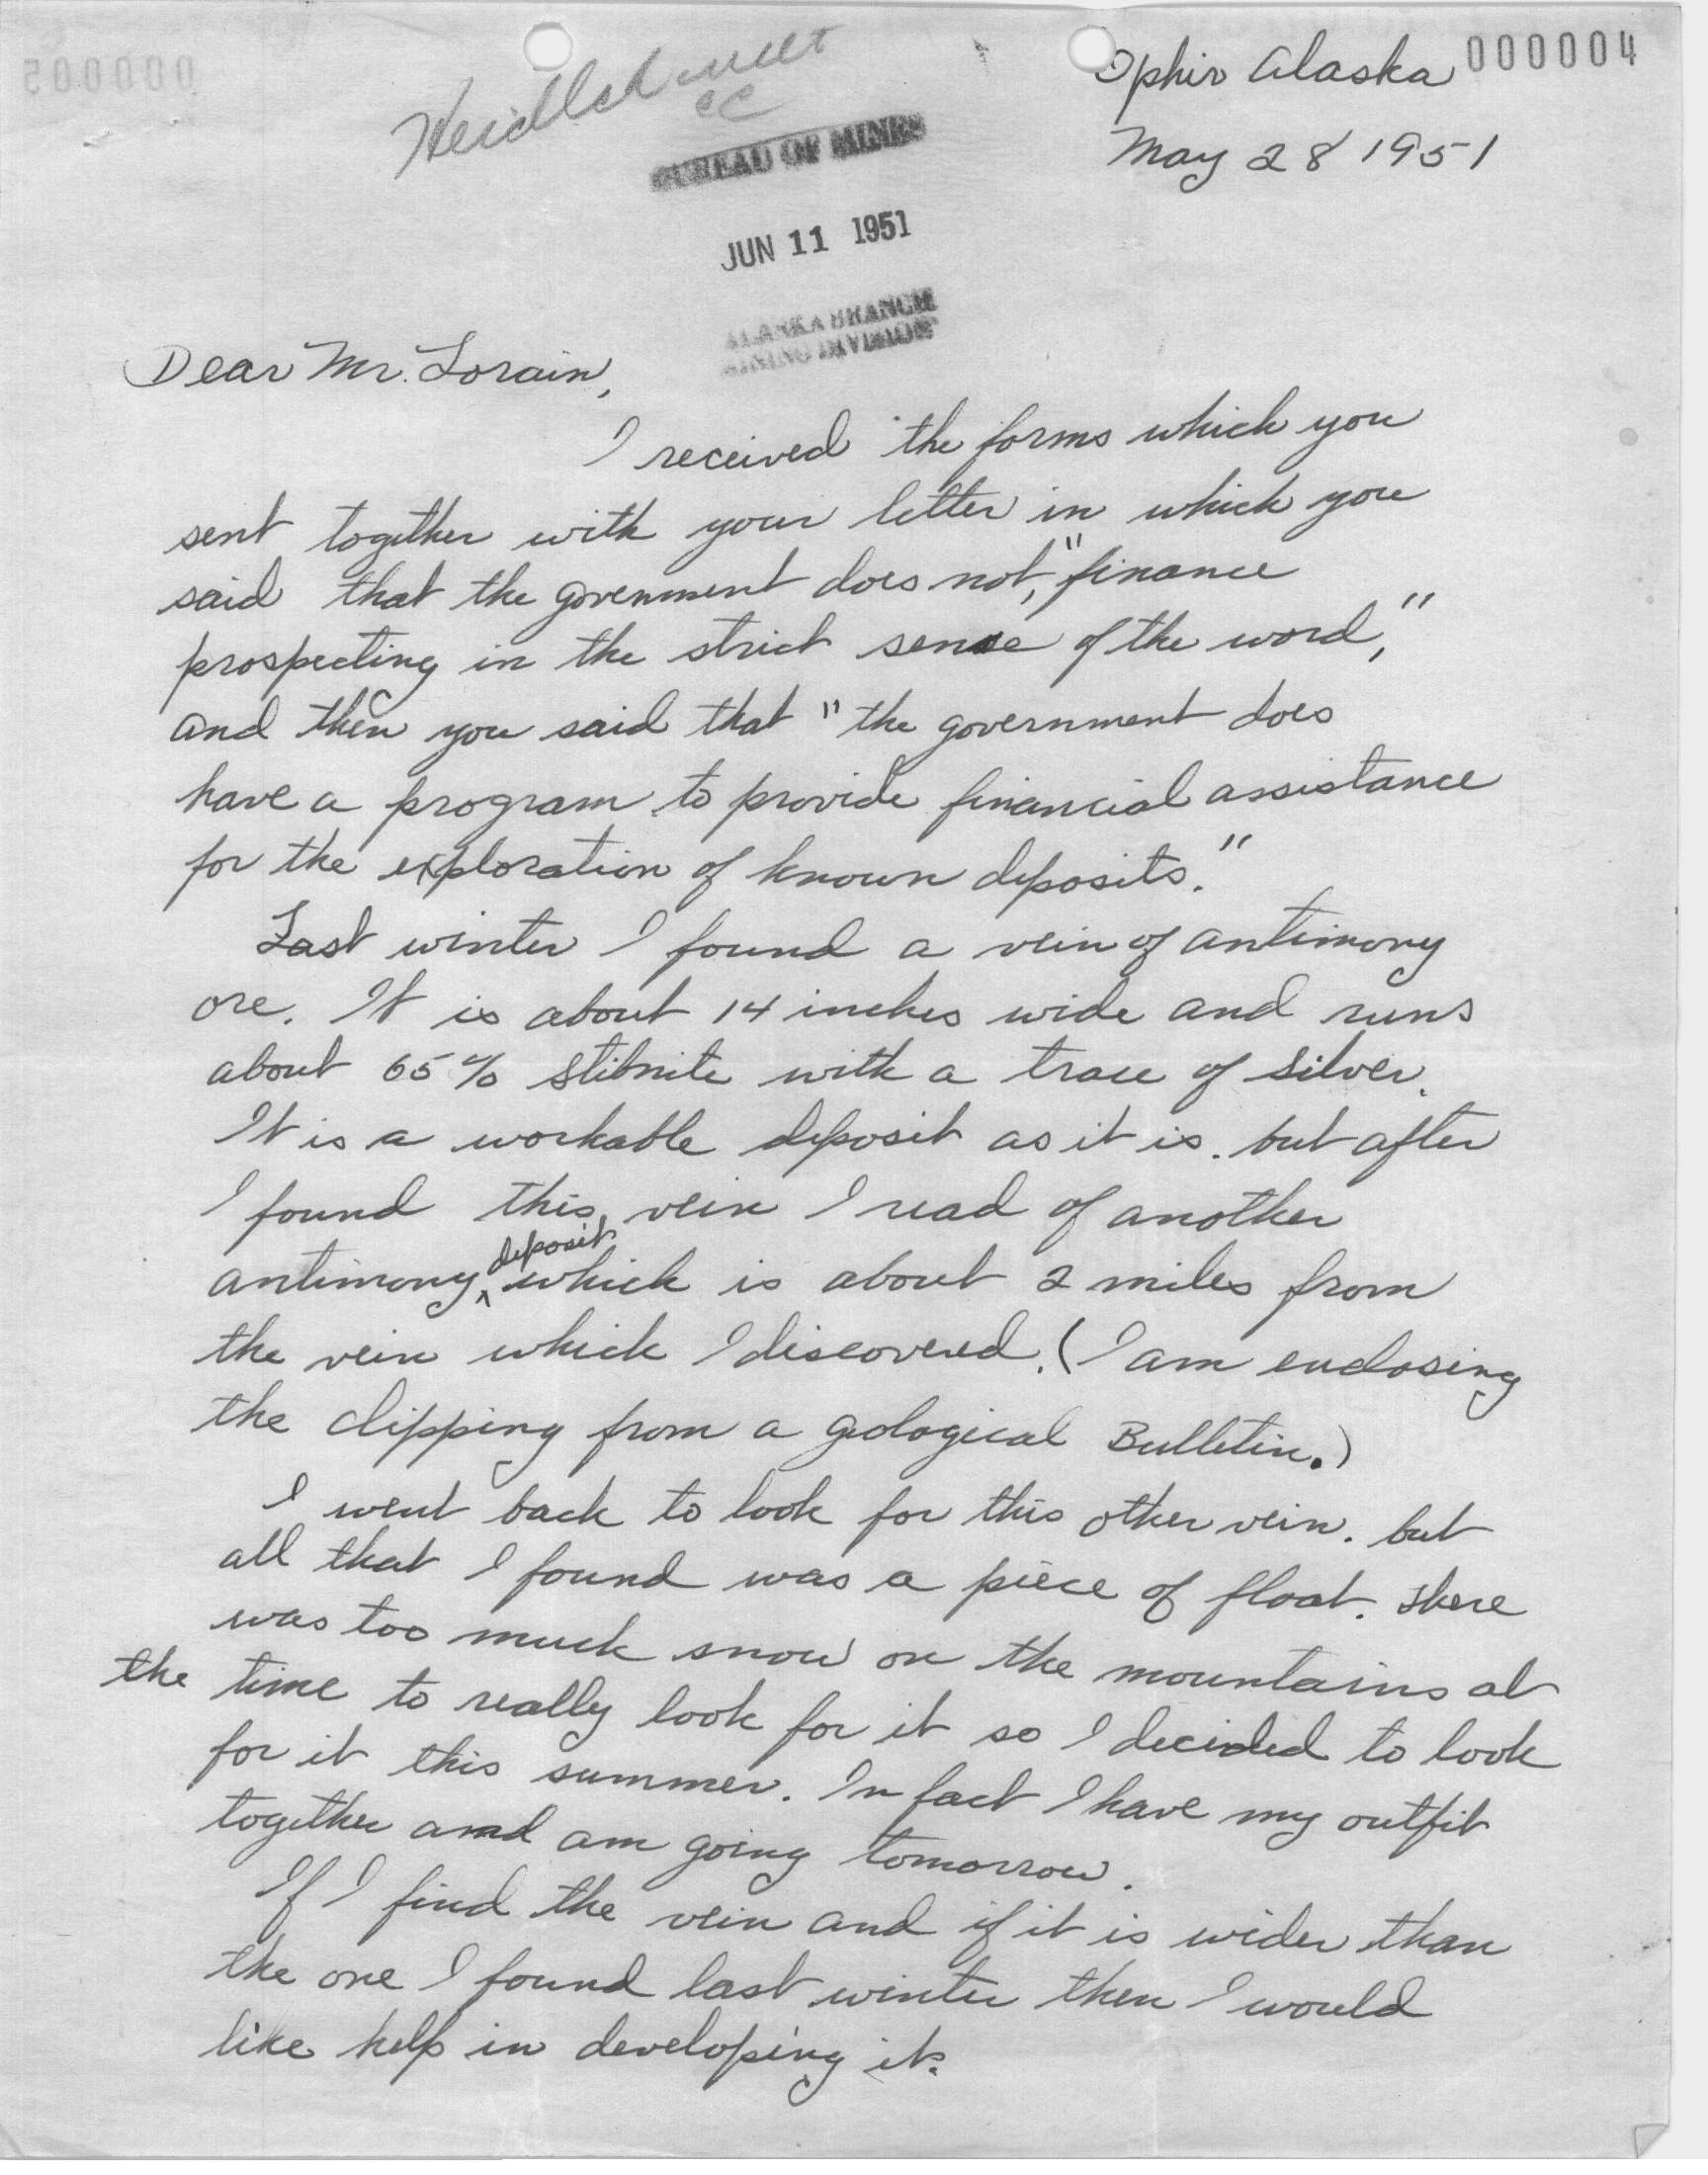 Ophir Alaska 000004
May 28 1951
cc
BUREAU OF MINES
JUN 11 1951
ALASKA BRANCH
MINING DIVISION
Dear Mr. Lorain,
I received the forms which you
sent together with your letter in which you
said that the government does not, "finance
prospecting in the strict sense of the word,"
and then you said that "the government does
have a program to provide financial assistance
for the exploration of known deposits."
Last winter I found a vein of antimony
ore. It is about 14 inches wide and runs
about 65% stibnite with a trace of silver.
It is a workable deposit as it is. but after
I found this vein I read of another
antimony deposit which is about 2 miles from
the vein which I discovered. (I am enclosing
the clipping from a geological Bulletin.)
I went back to look for this other vein. but
all that I found was a piece of float. There
was too much snow on the mountains at
the time to really look for it so I decided to look
for it this summer. In fact I have my outfit
together and am going tomorrow.
If I find the vein and if it is wider than
the one I found last winter then I would
like help in developing it.